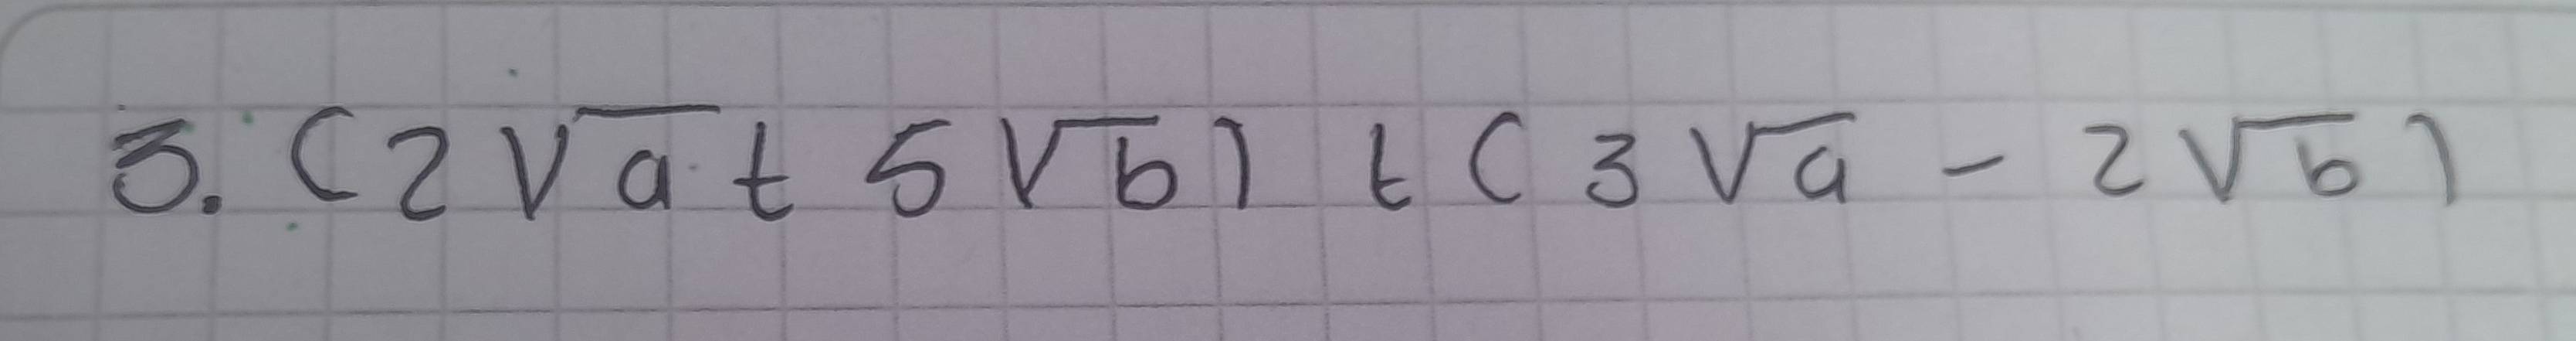 3. (2√a + 5√b) + (3√a - 2√b)